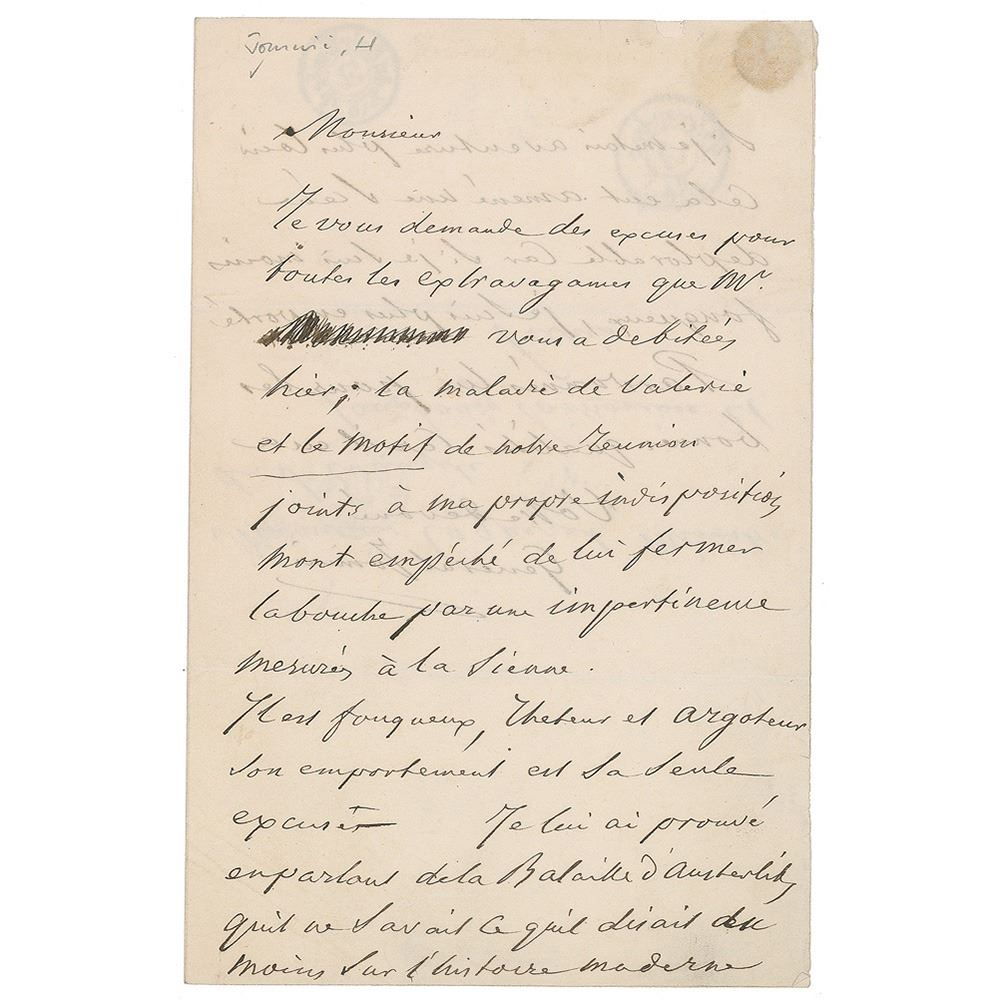 Jomini, H
Monsieur
Je vous demande des excuses pour
toutes les extravagances que Mr.
vous a debitées
hier; la maladie de Valerie
et le motif de notre reunion
joints à ma propre indisposition
mont empéché de lui fermer
la bouche par une impertinence
mesurée à la sienne.
Il est fougueux, rheteur et argoteur
son emportement est sa seule
excuse – Je lui ai prouvé
en parlant de la Bataille d'Austerlitz
qu'il ne savait ce qu'il disait du
moins sur l'histoire moderne